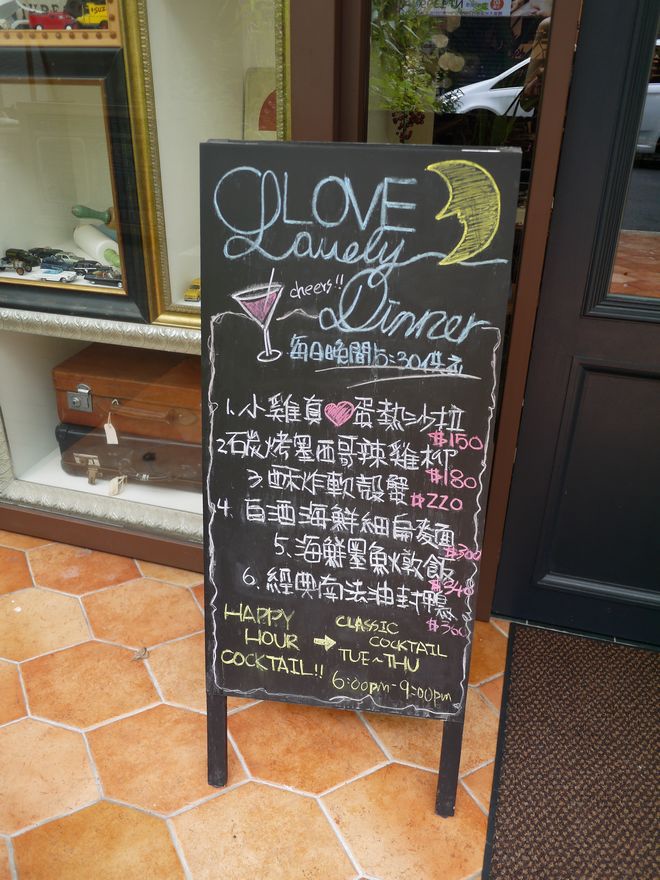 LOVE
Lovely
cheers!!
Dinner
每日晚間5:30供應
1.小雞真蛋熱沙拉
$150
2石炭烤墨西哥辣雞柳
$180
3酥炸軟殼蟹
$220
4.白酒海鮮細扁麵
$300
5.海鮮墨魚燉飯
$340
6.經典南法油封鴨
HAPPY HOUR COCKTAIL!!
CLASSIC COCKTAIL
TUE~THU
6:00pm-9:00pm